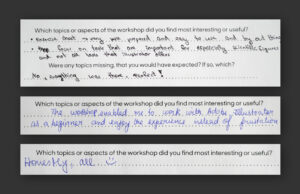 Which topics or aspects of the workshop did you find most interesting or useful?
• exercise sheet → very well prepared and easy to use and try out things
• focus on tools that are important for especially scientific figures
and not all tools that illustrator offers
Were any topics missing, that you would have expected? If so, which?
No, everything was there, perfect!
Which topics or aspects of the workshop did you find most interesting or useful?
The workshop enabled me to work with Adobe Illustrator
as a beginner and enjoy the experience instead of frustration
Which topics or aspects of the workshop did you find most interesting or useful?
Honestly, all... ☺